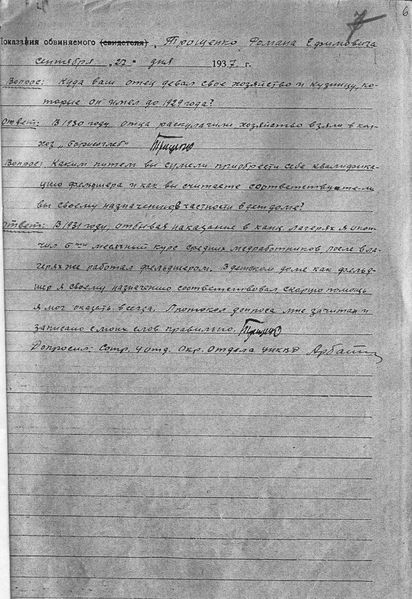 7
6
Показания обвиняемого (свидетеля) Трощенко Романа Ефимовича
Сентября "27" дня 1937 г.
Вопрос: Куда ваш отец девал свое хозяйство и кузницу, ко-
торые он имел до 1929 года?
Ответ: В 1930 году отца раскулачили хозяйство взяли в кол-
хоз
Вопрос: Каким путем вы сумели приобрести себе квалифика-
цию фельдшера и как вы считаете соответствуете ли
вы своему назначению в частности в детдоме?
Ответ: В 1931 году, отбывая наказание в лагерях я окон-
чил 5ти месячный курс средних медработников после в ла-
герях же работал фельдшером. В детском доме как фельд-
шер я своему назначению соответствовал скорую помощь
я мог оказать всегда. Протокол допроса мне зачитан и
записано с моих слов правильно.
Допросил: Сотр. 4 отд. Окр. Отдела НКВД